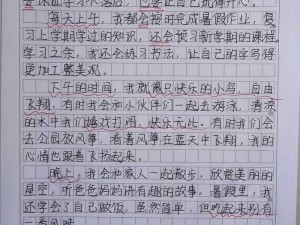 会保证学习不落后，也要让自己玩得开心。
每天上午，我都会按时完成暑假作业，复
习上学期学过的知识，还会预习新学期的课程
学习之余，我还会练习书法，让自己的字写得
更加工整美观。
下午的时间，我就像只快乐的小鸟，自由
飞翔。有时我会和小伙伴们一起去游泳，清凉
的水中我们嬉戏打闹，快乐无比。有时我们会
去公园放风筝，看着风筝在蓝天中飞翔，我的
心情也跟着飞扬起来。
晚上，我会和家人一起散步，欣赏美丽的
星空，听爸爸妈妈讲有趣的故事。暑假里，我
还学会了自己做饭，虽然简单，但吃起来别有
一番风味